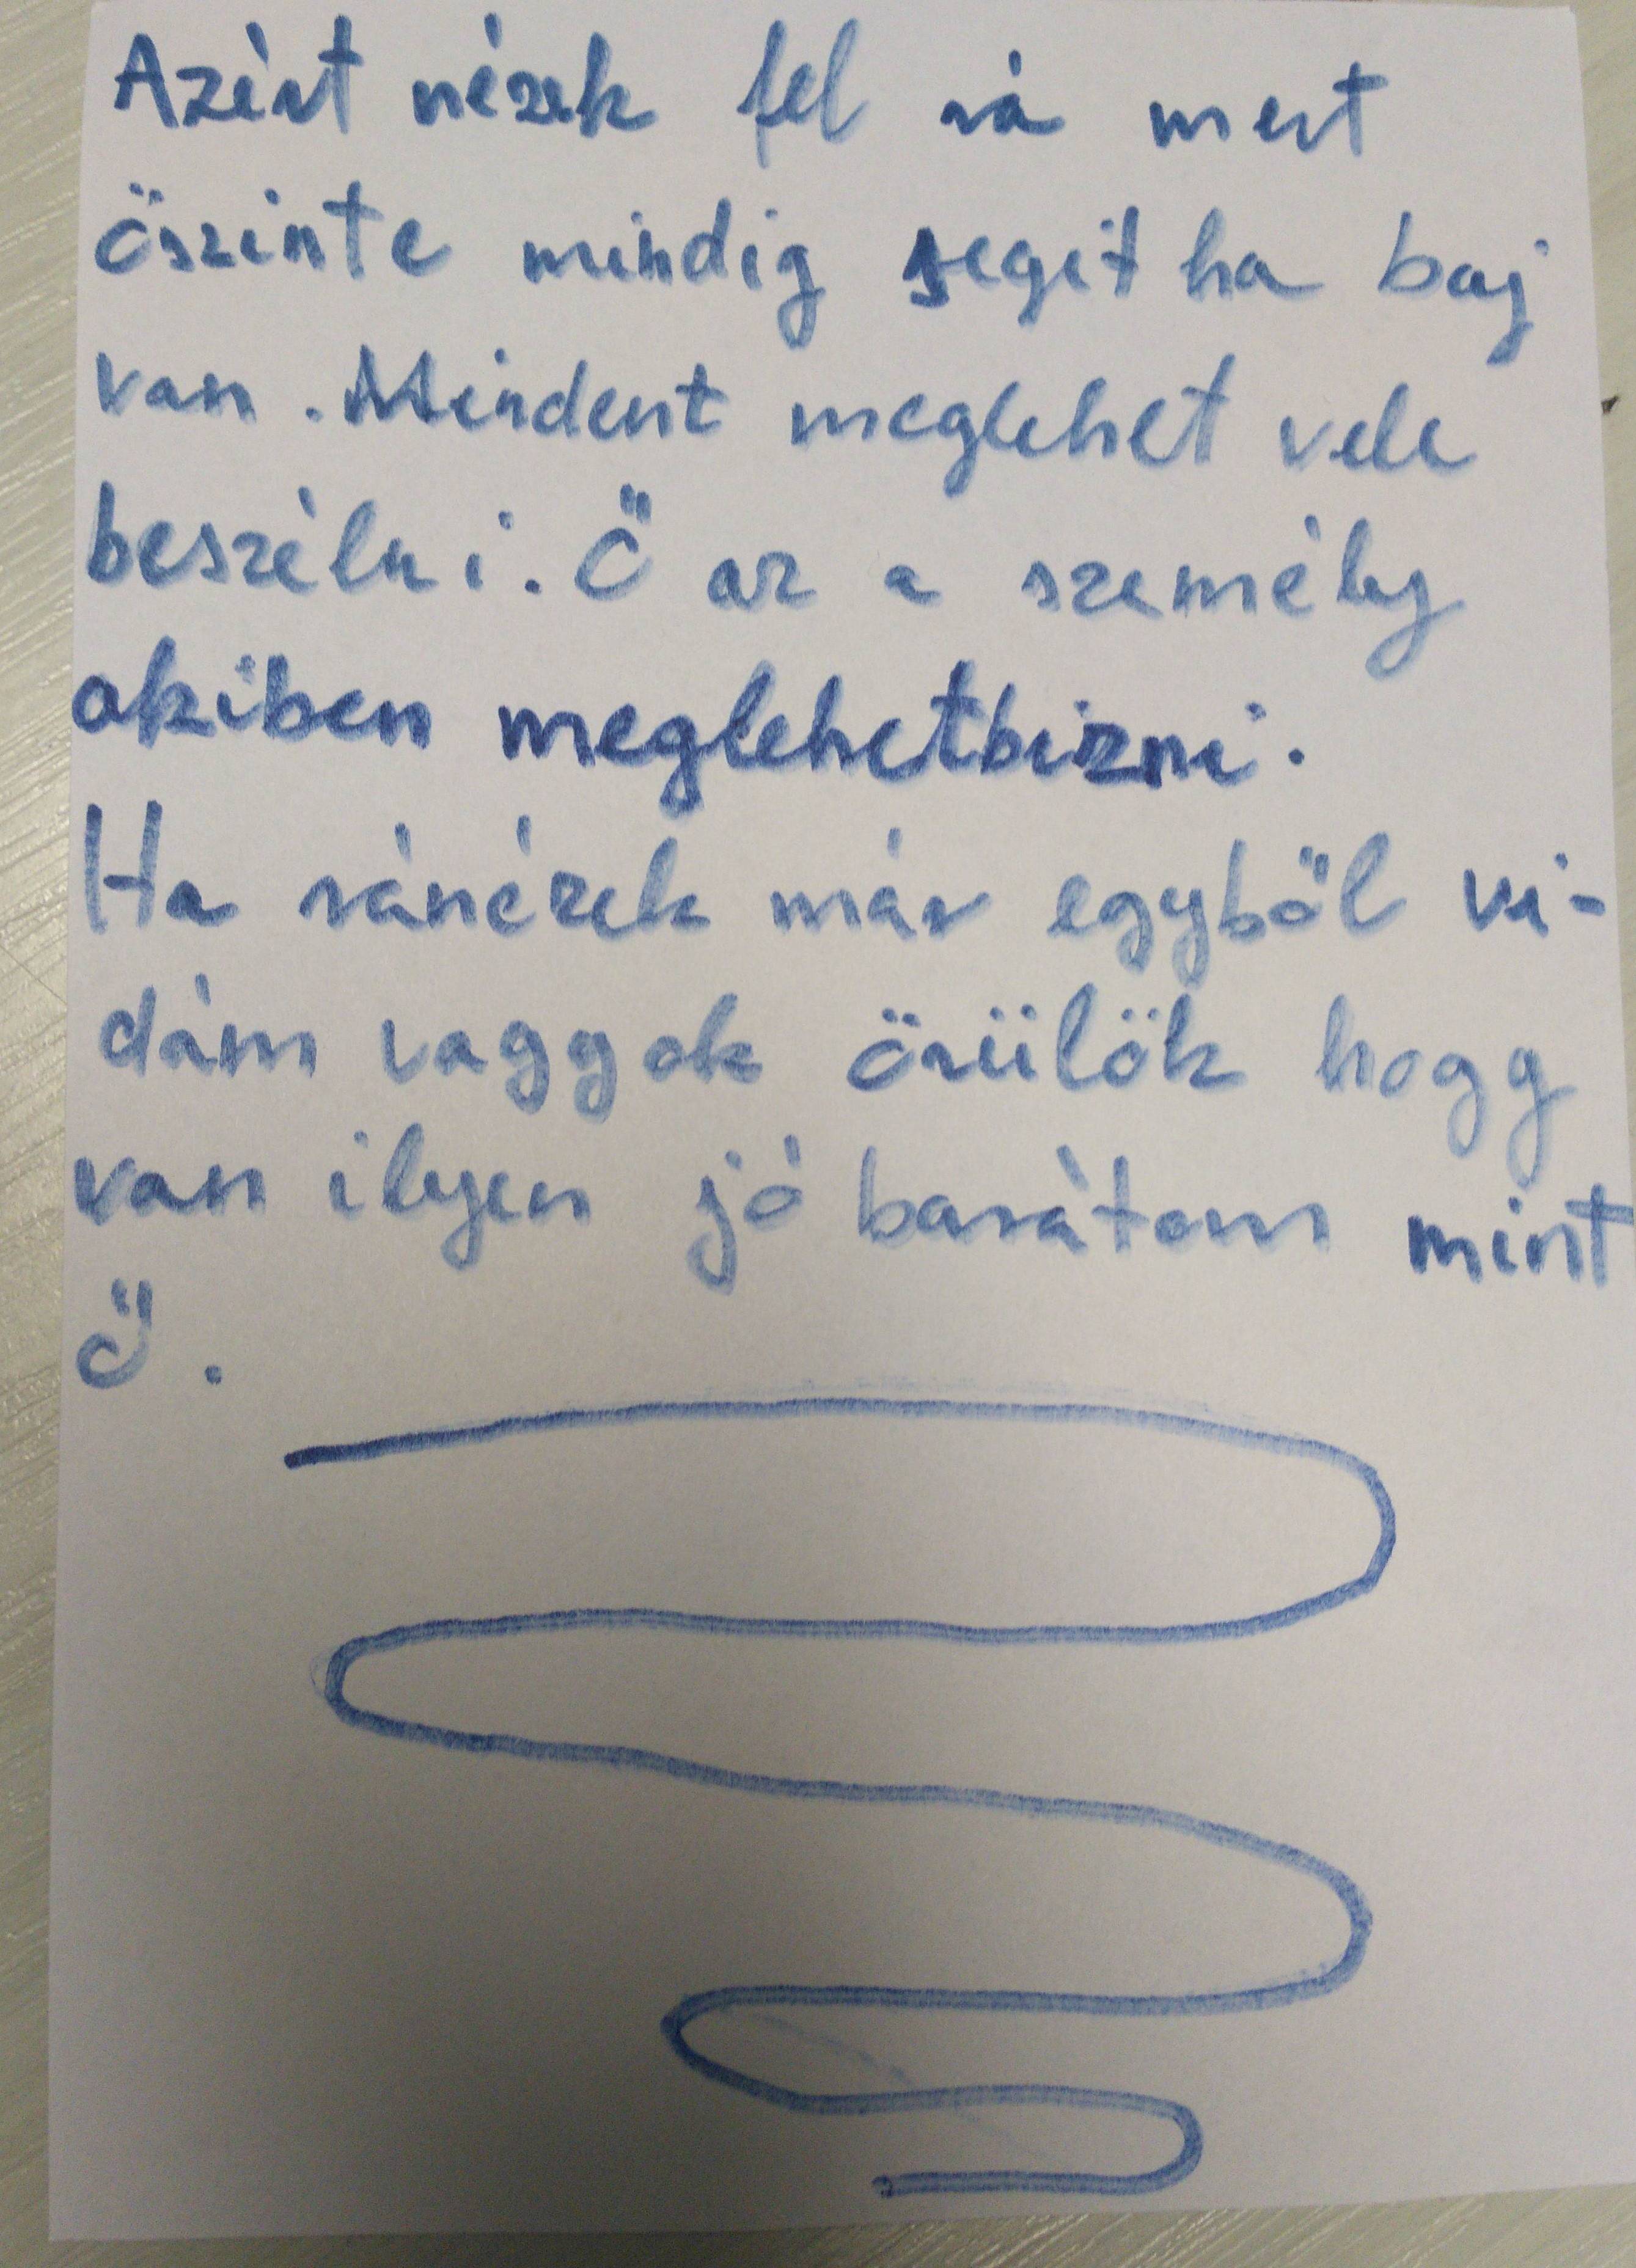 Azért nézek fel rá mert
őszinte mindig segit ha baj
van. Mindent meglehet vele
beszélni. Ő az a személy
akiben meglehetbizni.
Ha ránézek már egyből vi-
dám vaggok örülök hogg
van ilyen jó barátom mint
ő.